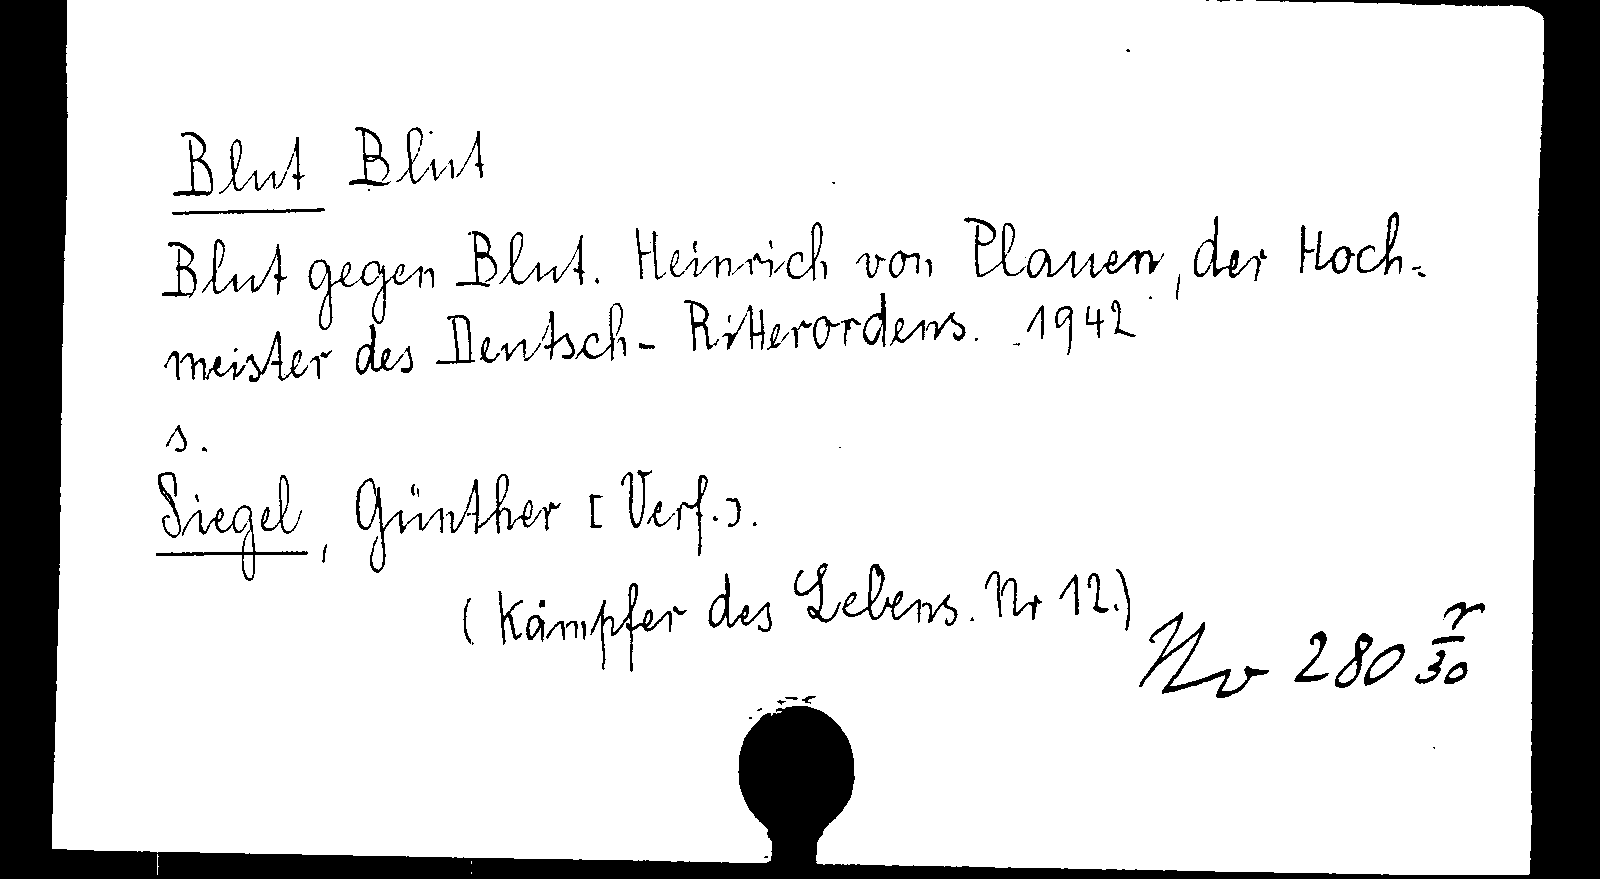 Blut Blut
Blut gegen Blut. Heinrich von Plauen, der Hoch-
meister des Deutsch-Ritterordens. 1942
s.
Siegel, Günther [Verf.].
(Kämpfer des Lebens. Nr 12.)
280 30